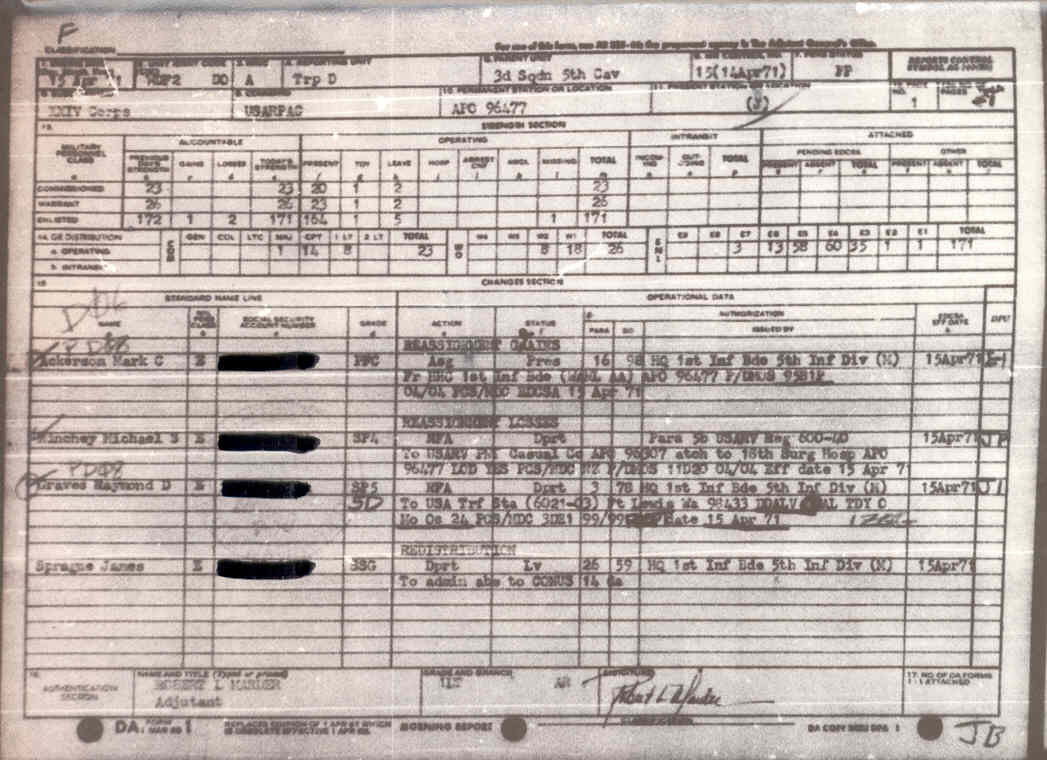 F
CLASSIFICATION
For use of this form, see AR 335-60; the proponent agency is The Adjutant General's Office.
15 Apr 1 MDF2 D0 A Trp D 3d Sqdn 5th Cav 15(14Apr71) FP REPORTS CONTROL
4. REPORTING UNIT 5. PARENT UNIT
XXIV Corps USARPAC APO 96477 (J) 1
10. PERMANENT STATION OR LOCATION 11. PRESENT STATION OR LOCATION
STRENGTH SECTION
MILITARY PERSONNEL CLASS ACCOUNTABLE OPERATING INTRANSIT ATTACHED
PENDING EDCSA OTHER
PREVIOUS DAY'S STRENGTH GAINS LOSSES TODAY'S STRENGTH PRESENT TDY LEAVE HOSP ARREST CNF AWOL MISSING TOTAL INCOMING OUTGOING TOTAL PRESENT ABSENT TOTAL PRESENT ABSENT TOTAL
COMMISSIONED 23 23 20 1 2 23
WARRANT 26 26 23 1 2 26
ENLISTED 172 1 2 171 164 1 5 1 171
14. GR DISTRIBUTION GEN COL LTC MAJ CPT 1 LT 2 LT TOTAL WO W4 W3 W2 W1 TOTAL ENL E9 E8 E7 E6 E5 E4 E3 E2 E1 TOTAL
a. OPERATING 1 14 8 23 8 18 26 3 13 58 60 35 1 1 171
b. INTRANSIT
CHANGES SECTION
STANDARD NAME LINE OPERATIONAL DATA
NAME SOCIAL SECURITY ACCOUNT NUMBER GRADE ACTION STATUS AUTHORIZATION EDCSA EFF DATE DPU
PARA SO ISSUED BY
REASSIGNMENT GAINS
ickerson Mark C E PFC Asg Pres 16 98 HQ 1st Inf Bde 5th Inf Div (M) 15Apr71
Fr HHC 1st Inf Bde APO 96477 P/DMOS 95B1P
04/04 PCS/MDC EDCSA 15 Apr 71
REASSIGNMENT LOSSES
Hinchey Michael S E SP4 RFA Dprt Para 5b USARV Reg 600-40 15Apr71 JP
To USARV PNT Casual Co APO 96307 atch to 18th Surg Hosp APO
96477 LOD YES PCS/MDC P/DMOS 11D20 04/04 Eff date 15 Apr 71
PDØ8
Graves Raymond D E SP5 RFA Dprt 3 78 HQ 1st Inf Bde 5th Inf Div (M) 15Apr71
To USA Trf Sta (6021-03) Ft Lewis Wa 98433 DDALV TDY 0
Mo Os 24 PCS/MDC 3DE1 99/99 date 15 Apr 71
REDISTRIBUTION
Sprague James E SSG Dprt Lv 26 59 HQ 1st Inf Bde 5th Inf Div (M) 15Apr71
To admin abs to CONUS 14 da
16. AUTHENTICATION SECTION NAME AND TITLE (Typed or printed) GRADE AND BRANCH SIGNATURE 17. NO. OF DA FORMS 1-1 ATTACHED
ROBERT L MARDER 1LT AR Robert L Marder
Adjutant
DA FORM 1 REPLACES EDITION OF 1 APR 61 WHICH IS OBSOLETE EFFECTIVE 1 APR 65. MORNING REPORT DA COPY
JB